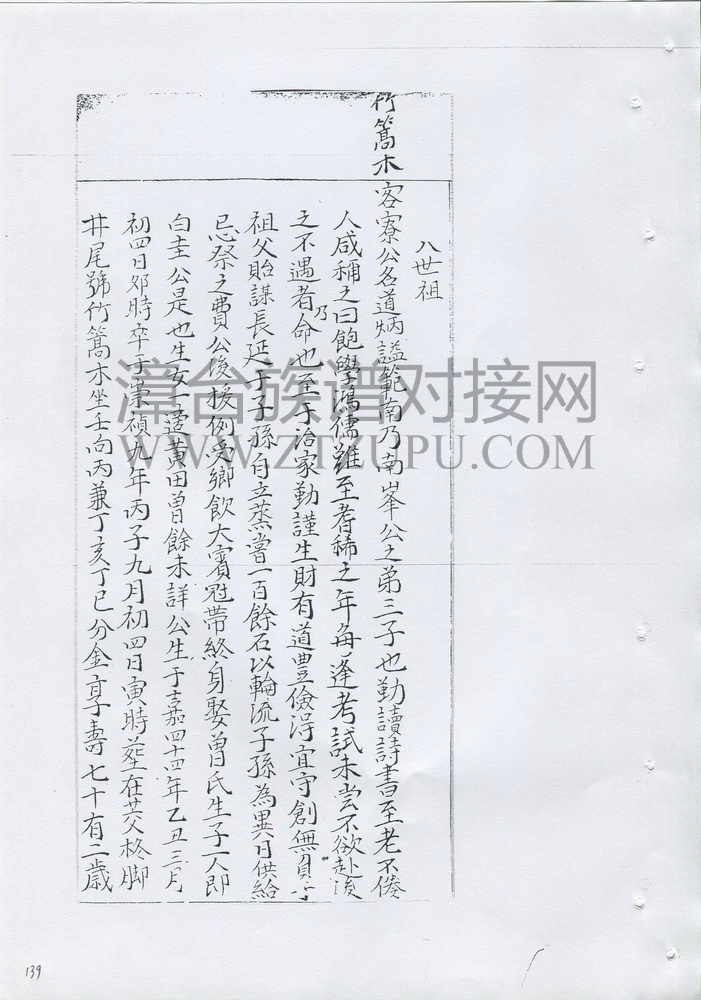 竹篙木
八世祖
客寮公名道炳謚範南乃南峯公之第三子也勤讀詩書至老不倦
人咸稱之曰飽學鴻儒雖至耆稀之年每逢考試未嘗不欲赴
之不遇者乃命也至于治家勤謹生財有道豊儉得宜守創無負
祖父貽謀長延于子孫自立蒸嘗一百餘石以輪流子孫為異日供給
忌祭之費公後援例受鄉飲大賓冠帶終身娶曽氏生子一人即
白圭公是也生女一適黃田曽餘未詳公生于嘉四十四年乙丑三月
初四日夘時卒于崇禎九年丙子九月初四日寅時塟在共父柊脚
井尾號竹篙木坐壬向丙兼丁亥丁巳分金享壽七十有二歲
漳台族谱对接网
WWW.ZTZUPU.COM
139